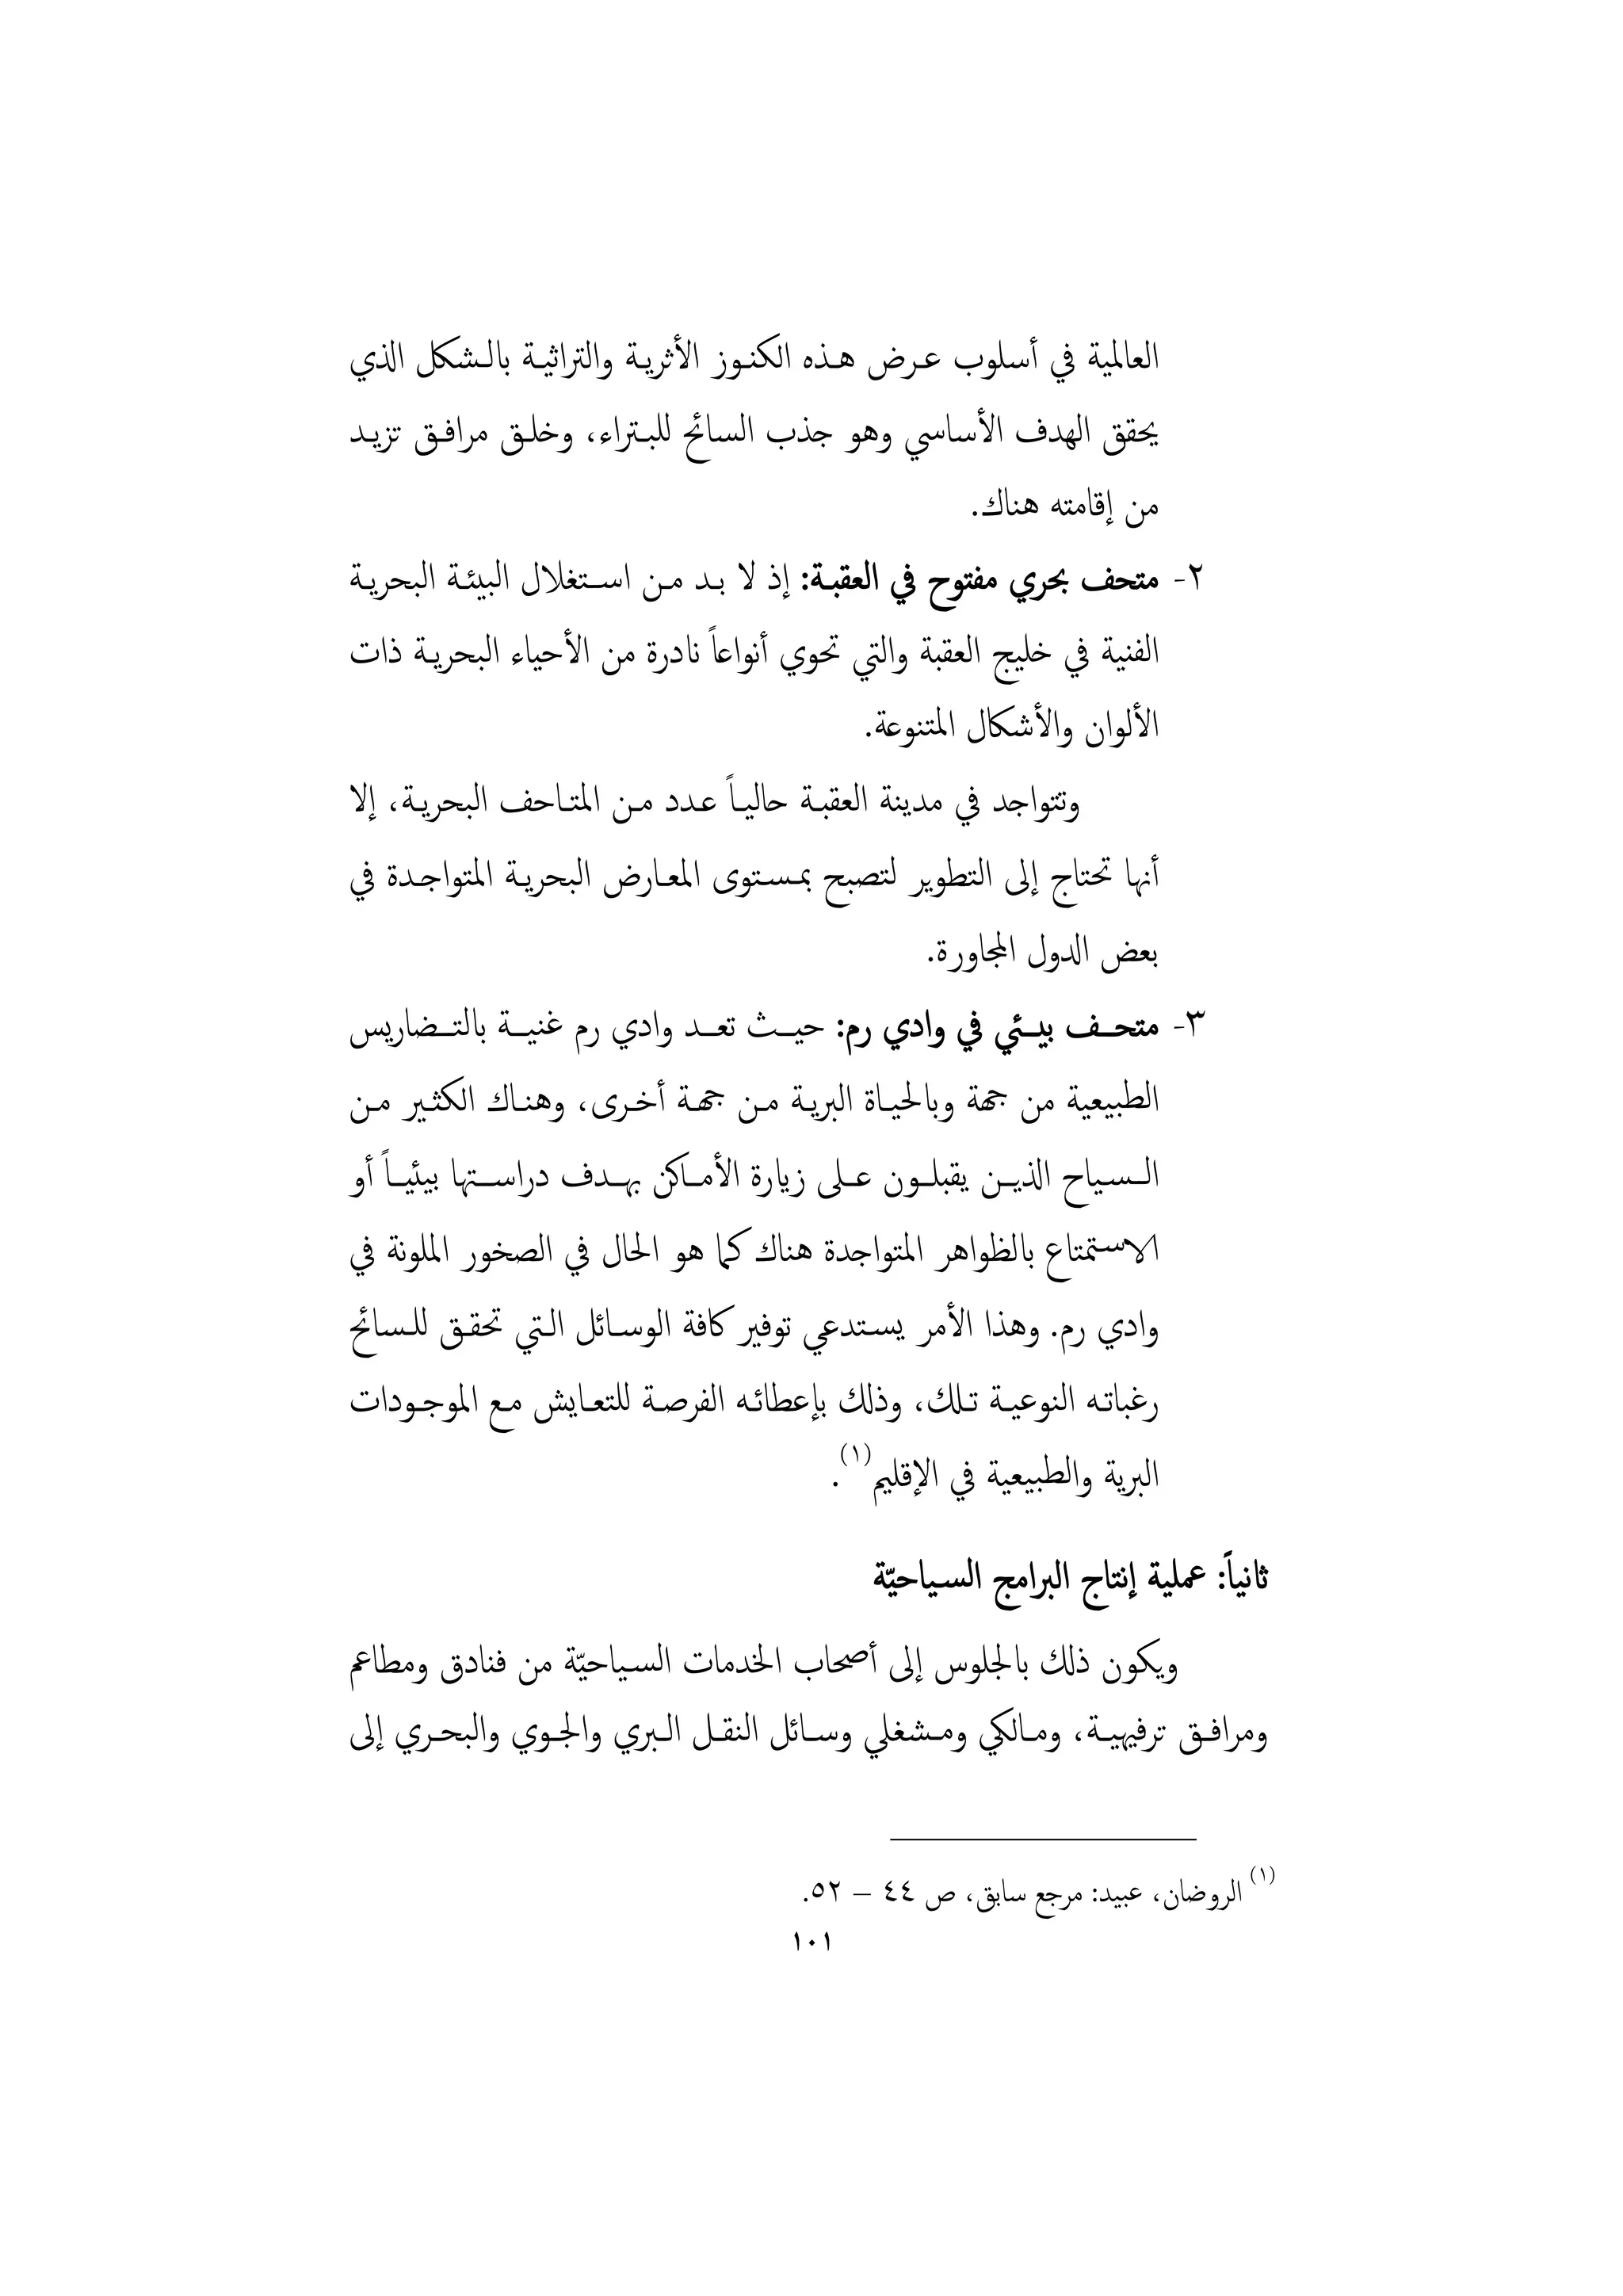 العالمية في أسلوب عرض هذه الكنوز الأثرية والتراثية بالشكل الذي
يحقق الهدف الأساسي وهو جذب السائح للبتراء، وخلق مرافق تزيد
من إقامته هناك.
٢- متحف بحري مفتوح في العقبة: إذ لا بد من استغلال البيئة البحرية
الفنية في خليج العقبة والتي تحوي أنواعاً نادرة من الأحياء البحرية ذات
الألوان والأشكال المتنوعة.
وتتواجد في مدينة العقبة حالياً عدد من المتاحف البحرية، إلا
أنها تحتاج إلى التطوير لتصبح بمستوى المعارض البحرية المتواجدة في
بعض الدول المجاورة.
٣- متحف بيئي في وادي رم: حيث تعد وادي رم غنية بالتضاريس
الطبيعية من جهة وبالحياة البرية من جهة أخرى، وهناك الكثير من
السياح الذين يقبلون على زيارة الأماكن بهدف دراستها بيئياً أو
الاستمتاع بالظواهر المتواجدة هناك كما هو الحال في الصخور الملونة في
وادي رم. وهذا الأمر يستدعي توفير كافة الوسائل التي تحقق للسائح
رغباته النوعية تلك، وذلك بإعطائه الفرصة للتعايش مع الموجودات
البرية والطبيعية في الإقليم(١).
ثانياً: عملية إنتاج البرامج السياحيّة
ويكون ذلك بالجلوس إلى أصحاب الخدمات السياحيّة من فنادق ومطاعم
ومرافق ترفيهية، ومالكي ومشغلي وسائل النقل البري والجوي والبحري إلى
(١) الروضان، عبيد: مرجع سابق، ص ٤٤ – ٥٢.
١٠١